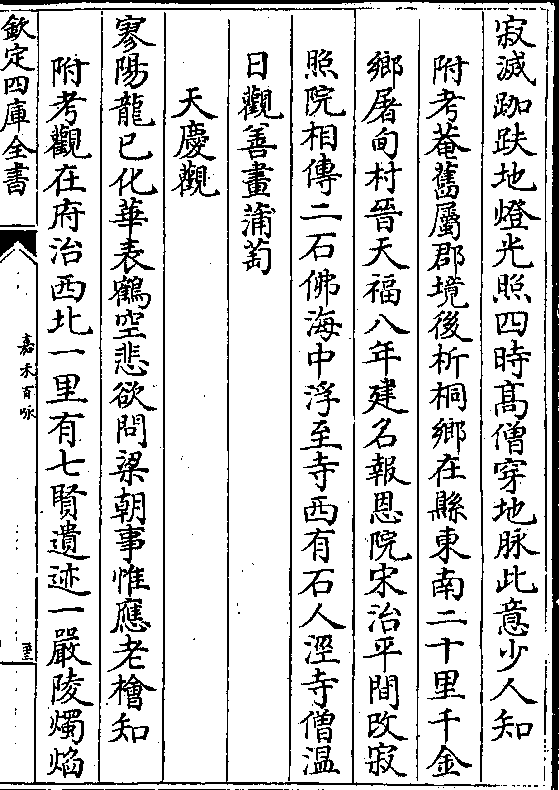 寂滅跏趺地燈光照四時髙僧穿地脉此意少人知
附考菴舊屬郡境後析桐鄉在縣東南二十里千金
鄉屠甸村晉天福八年建名報恩院宋治平間改寂
照院相傳二石佛海中浮至寺西有石人涇寺僧温
日觀善畫蒲萄
天慶觀
寥陽龍已化華表鶴空悲欲問梁朝事惟應老檜知
附考觀在府治西北一里有七賢遺迹一嚴陵燭焰
欽定四庫全書
嘉禾百咏